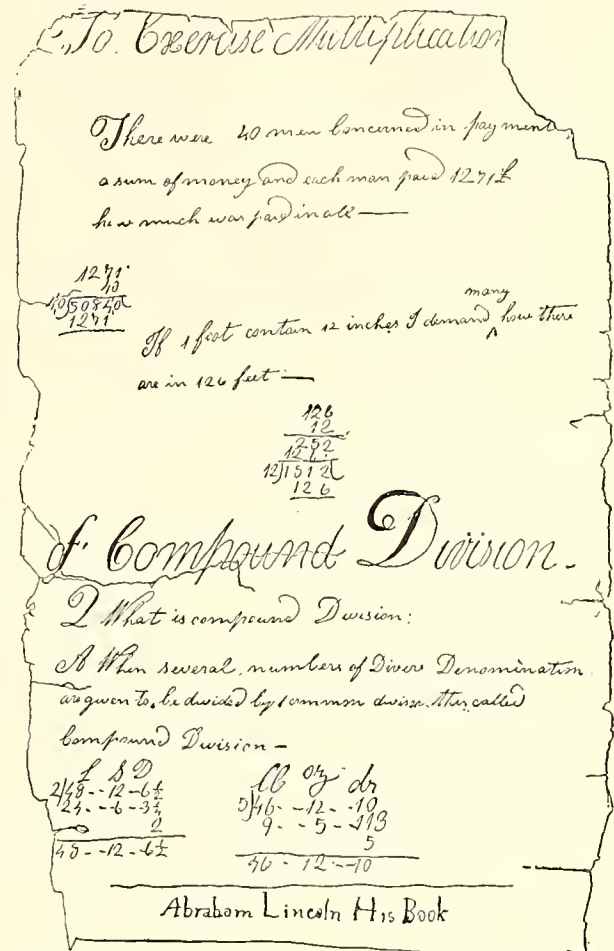 To Exercise Multiplication
There were 40 men Concerned in payment
a sum of money and each man paid 1271£
how much was paid in all —
1271
40
4,0)5084,0(
1271
many
If 1 foot contain 12 inches I demand ^ how there
are in 126 feet —
126
12
252
126
12)1512(
126
of Compound Division -
Q What is compound Division:
A When several numbers of Divers Denomination
are given to be divided by 1 common divisor this called
Compound Division -
£ S D
2)48 - - 12 - 6½
24 - - 6 - 3¼
2
48 - - 12 - 6½
lb oz dr
5)46 - - 12 - - 10
9 - - 5 - - 113
5
46 - 12 - - 10
Abraham Lincoln His Book